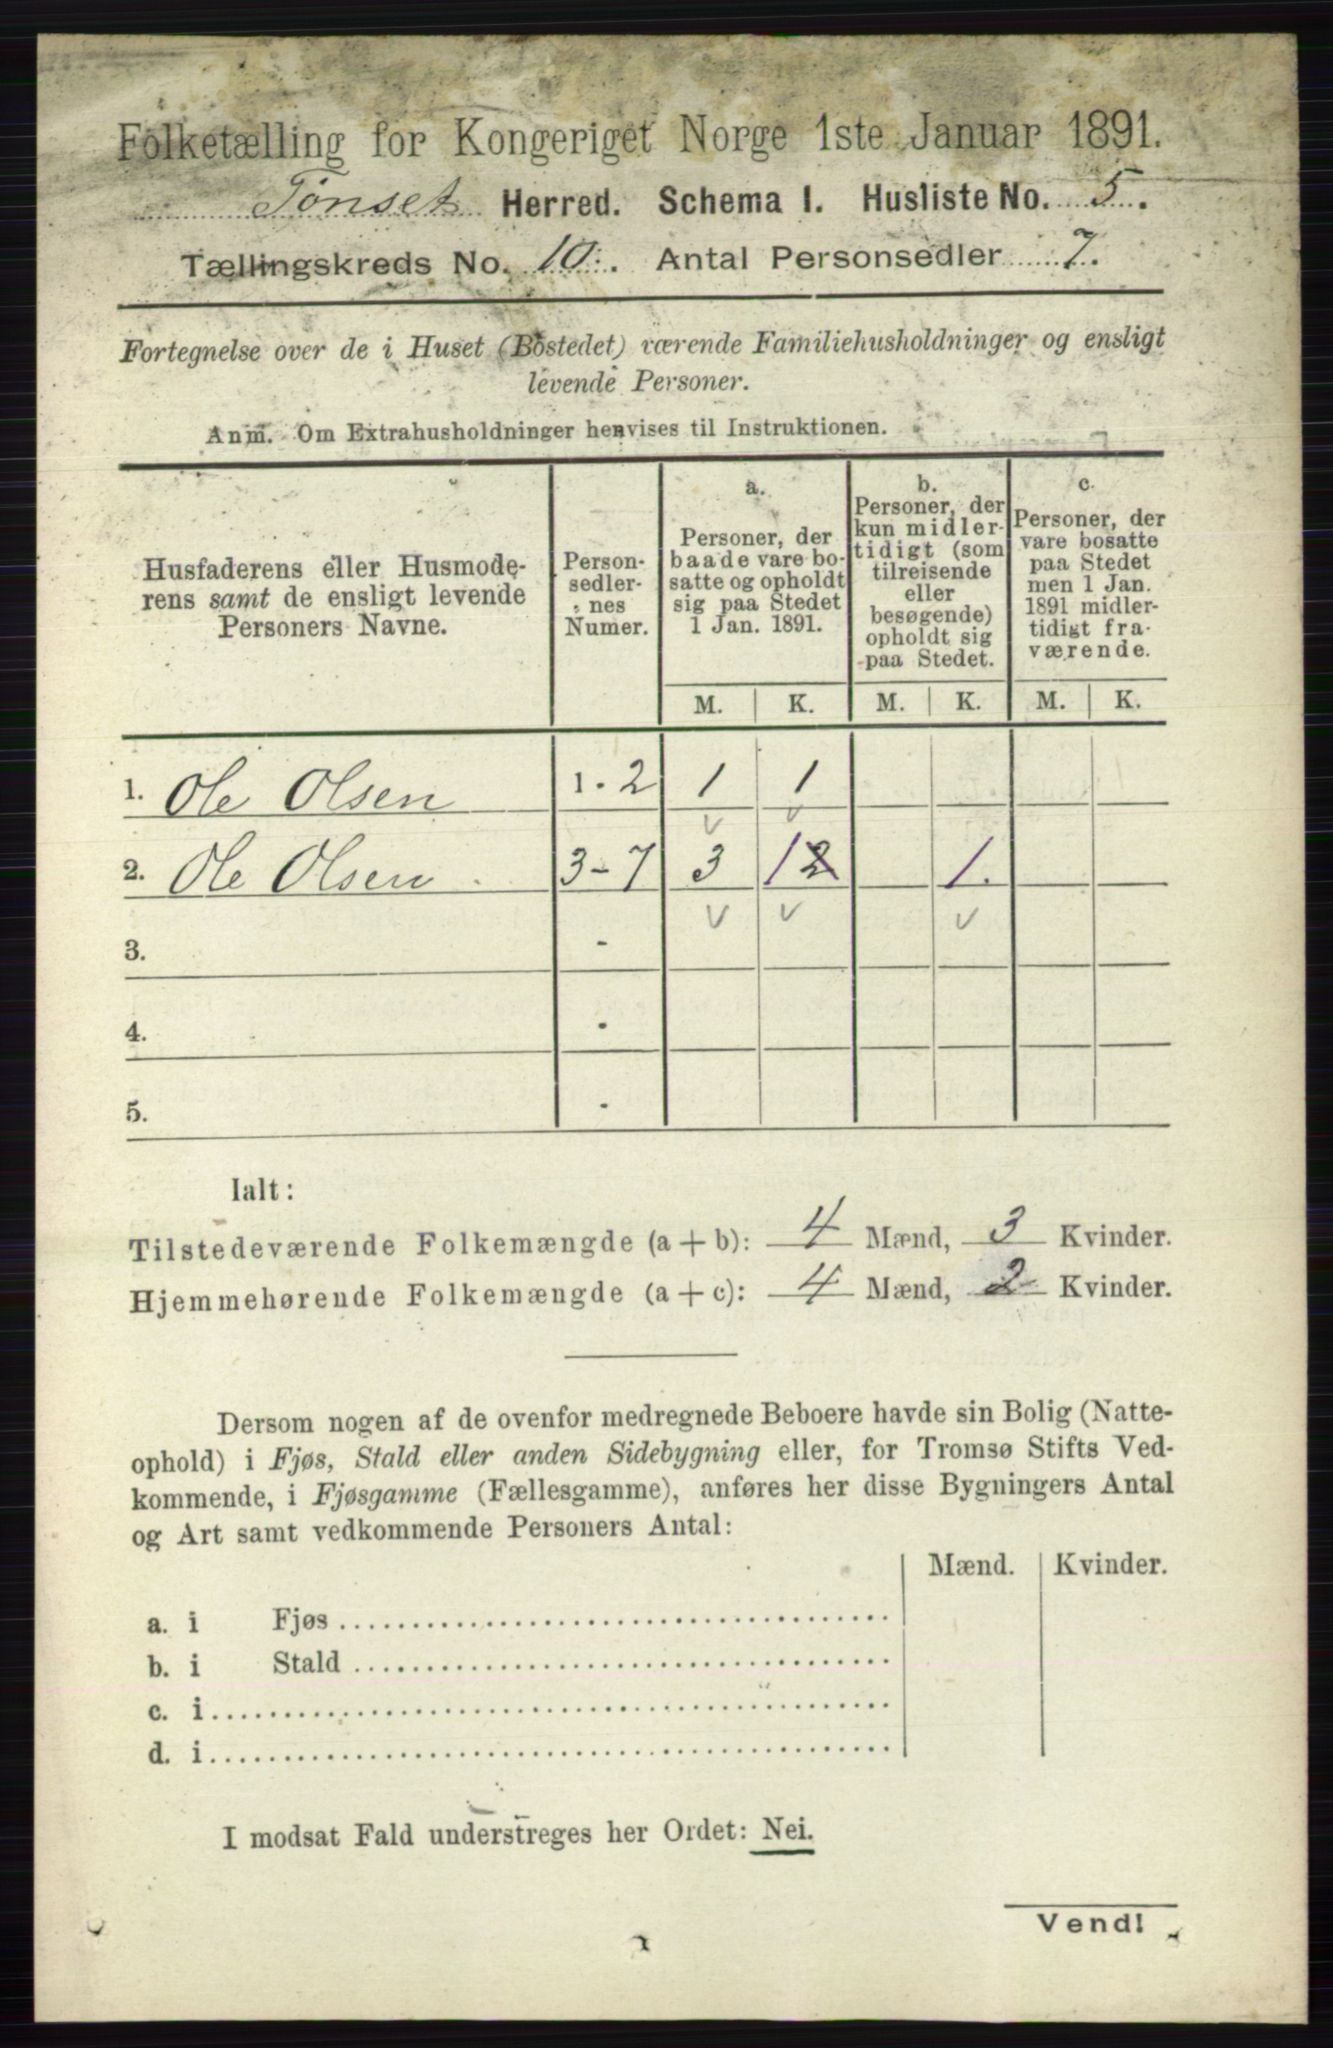 Folketælling for Kongeriget Norge 1ste Januar 1891.
Tønset Herred. Schema I. Husliste No. 5.
Tællingskreds No. 10. Antal Personsedler 7.
Fortegnelse over de i Huset (Bostedet) værende Familiehusholdninger og ensligt
levende Personer.
Anm. Om Extrahusholdninger henvises til Instruktionen.
Husfaderens eller Husmode-
rens samt de ensligt levende
Personers Navne.
Person-
sedler-
nes
Numer.
a.
Personer, der
baade vare bo-
satte og opholdt
sig paa Stedet
1 Jan. 1891.
b.
Personer, der
kun midler-
tidigt (som
tilreisende
eller
besøgende)
opholdt sig
paa Stedet.
c.
Personer, der
vare bosatte
paa Stedet
men 1 Jan.
1891 midler-
tidigt fra-
værende.
M. K. M. K. M. K.
1. Ole Olsen 1-2 1 1
2. Ole Olsen 3-7 3 1 2 1.
3. -
4. -
5. -
Ialt:
Tilstedeværende Folkemængde (a + b): 4 Mænd, 3 Kvinder.
Hjemmehørende Folkemængde (a + c): 4 Mænd, 2 Kvinder.
Dersom nogen af de ovenfor medregnede Beboere havde sin Bolig (Natte-
ophold) i Fjøs, Stald eller anden Sidebygning eller, for Tromsø Stifts Ved-
kommende, i Fjøsgamme (Fællesgamme), anføres her disse Bygningers Antal
og Art samt vedkommende Personers Antal:
Mænd. Kvinder.
a. i Fjøs
b. i Stald
c. i
d. i
I modsat Fald understreges her Ordet: Nei.
Vend!